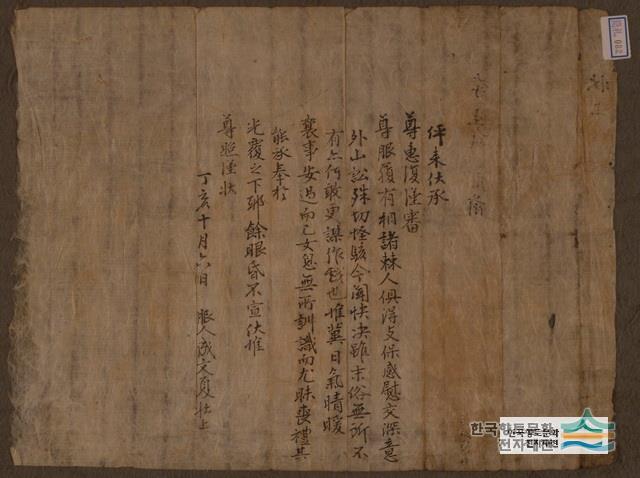 伻来伏承
尊惠復謹審
尊服履有相諸棘人俱得支保感慰交深意
外山訟殊切怪駭今聞快决雖末俗無所不
有亦何敢更謀作戱也惟冀日氣晴暖
襄事安過而已女息無所訓識而尤昧喪禮其
能承奉於
光覆之下耶餘眼昏不宣伏惟
尊照謹狀
丁亥十月六日 服人成文夏狀上
한국향토문화
전자대전